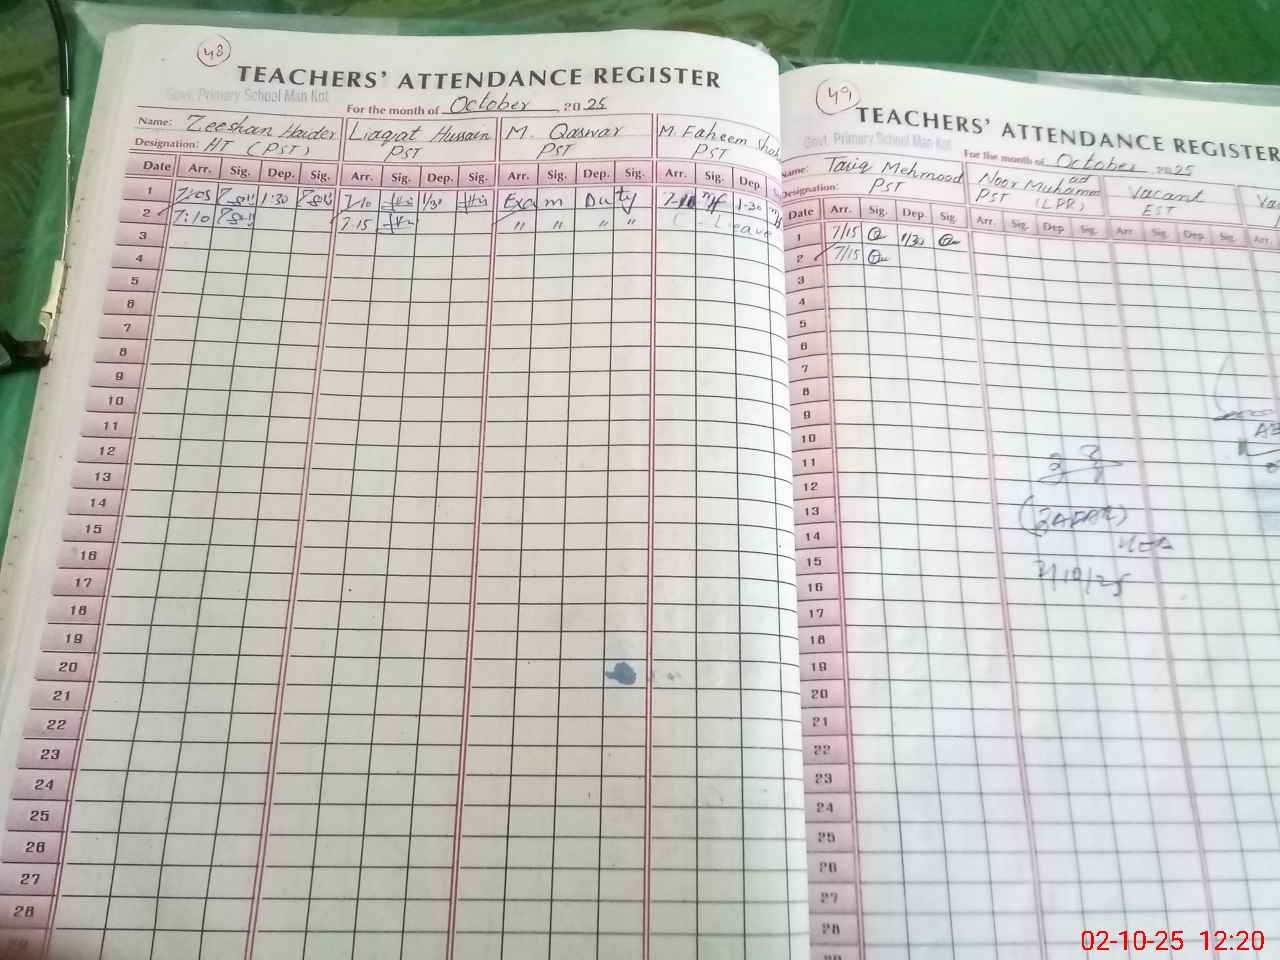 48
TEACHERS' ATTENDANCE REGISTER
Govt. Primary School Man Kot
For the month of October 2025
Name: Zeeshan Haider Liaqat Hussain M. Qaswar M. Faheem Shah
Designation: HT (PST) PST PST PST
Date Arr. Sig. Dep. Sig. Arr. Sig. Dep. Sig. Arr. Sig. Dep. Sig. Arr. Sig. Dep.
1 7:05 1:30 7/10 1/30 Exam Duty 7-10 1-30
2 7:10 7-15 " " " " Leave
3
4
5
6
7
8
9
10
11
12
13
14
15
16
17
18
19
20
21
22
23
24
25
26
27
28
29
49
TEACHERS' ATTENDANCE REGISTER
Govt. Primary School Man Kot
For the month of October 2025
Name: Tariq Mehmood Noor Muhammad Vacant
Designation: PST PST (LPR) EST
Date Arr. Sig. Dep. Sig. Arr. Sig. Dep Sig. Arr Sig. Dep Sig. Arr.
1 7/15 1/30
2 7/15
3
4
5
6
7
8
9
10
11
12
13
14
15
16
17
18
19
20
21
22
23
24
25
26
27
28
(ZAFAR)
2/10/25
02-10-25 12:20